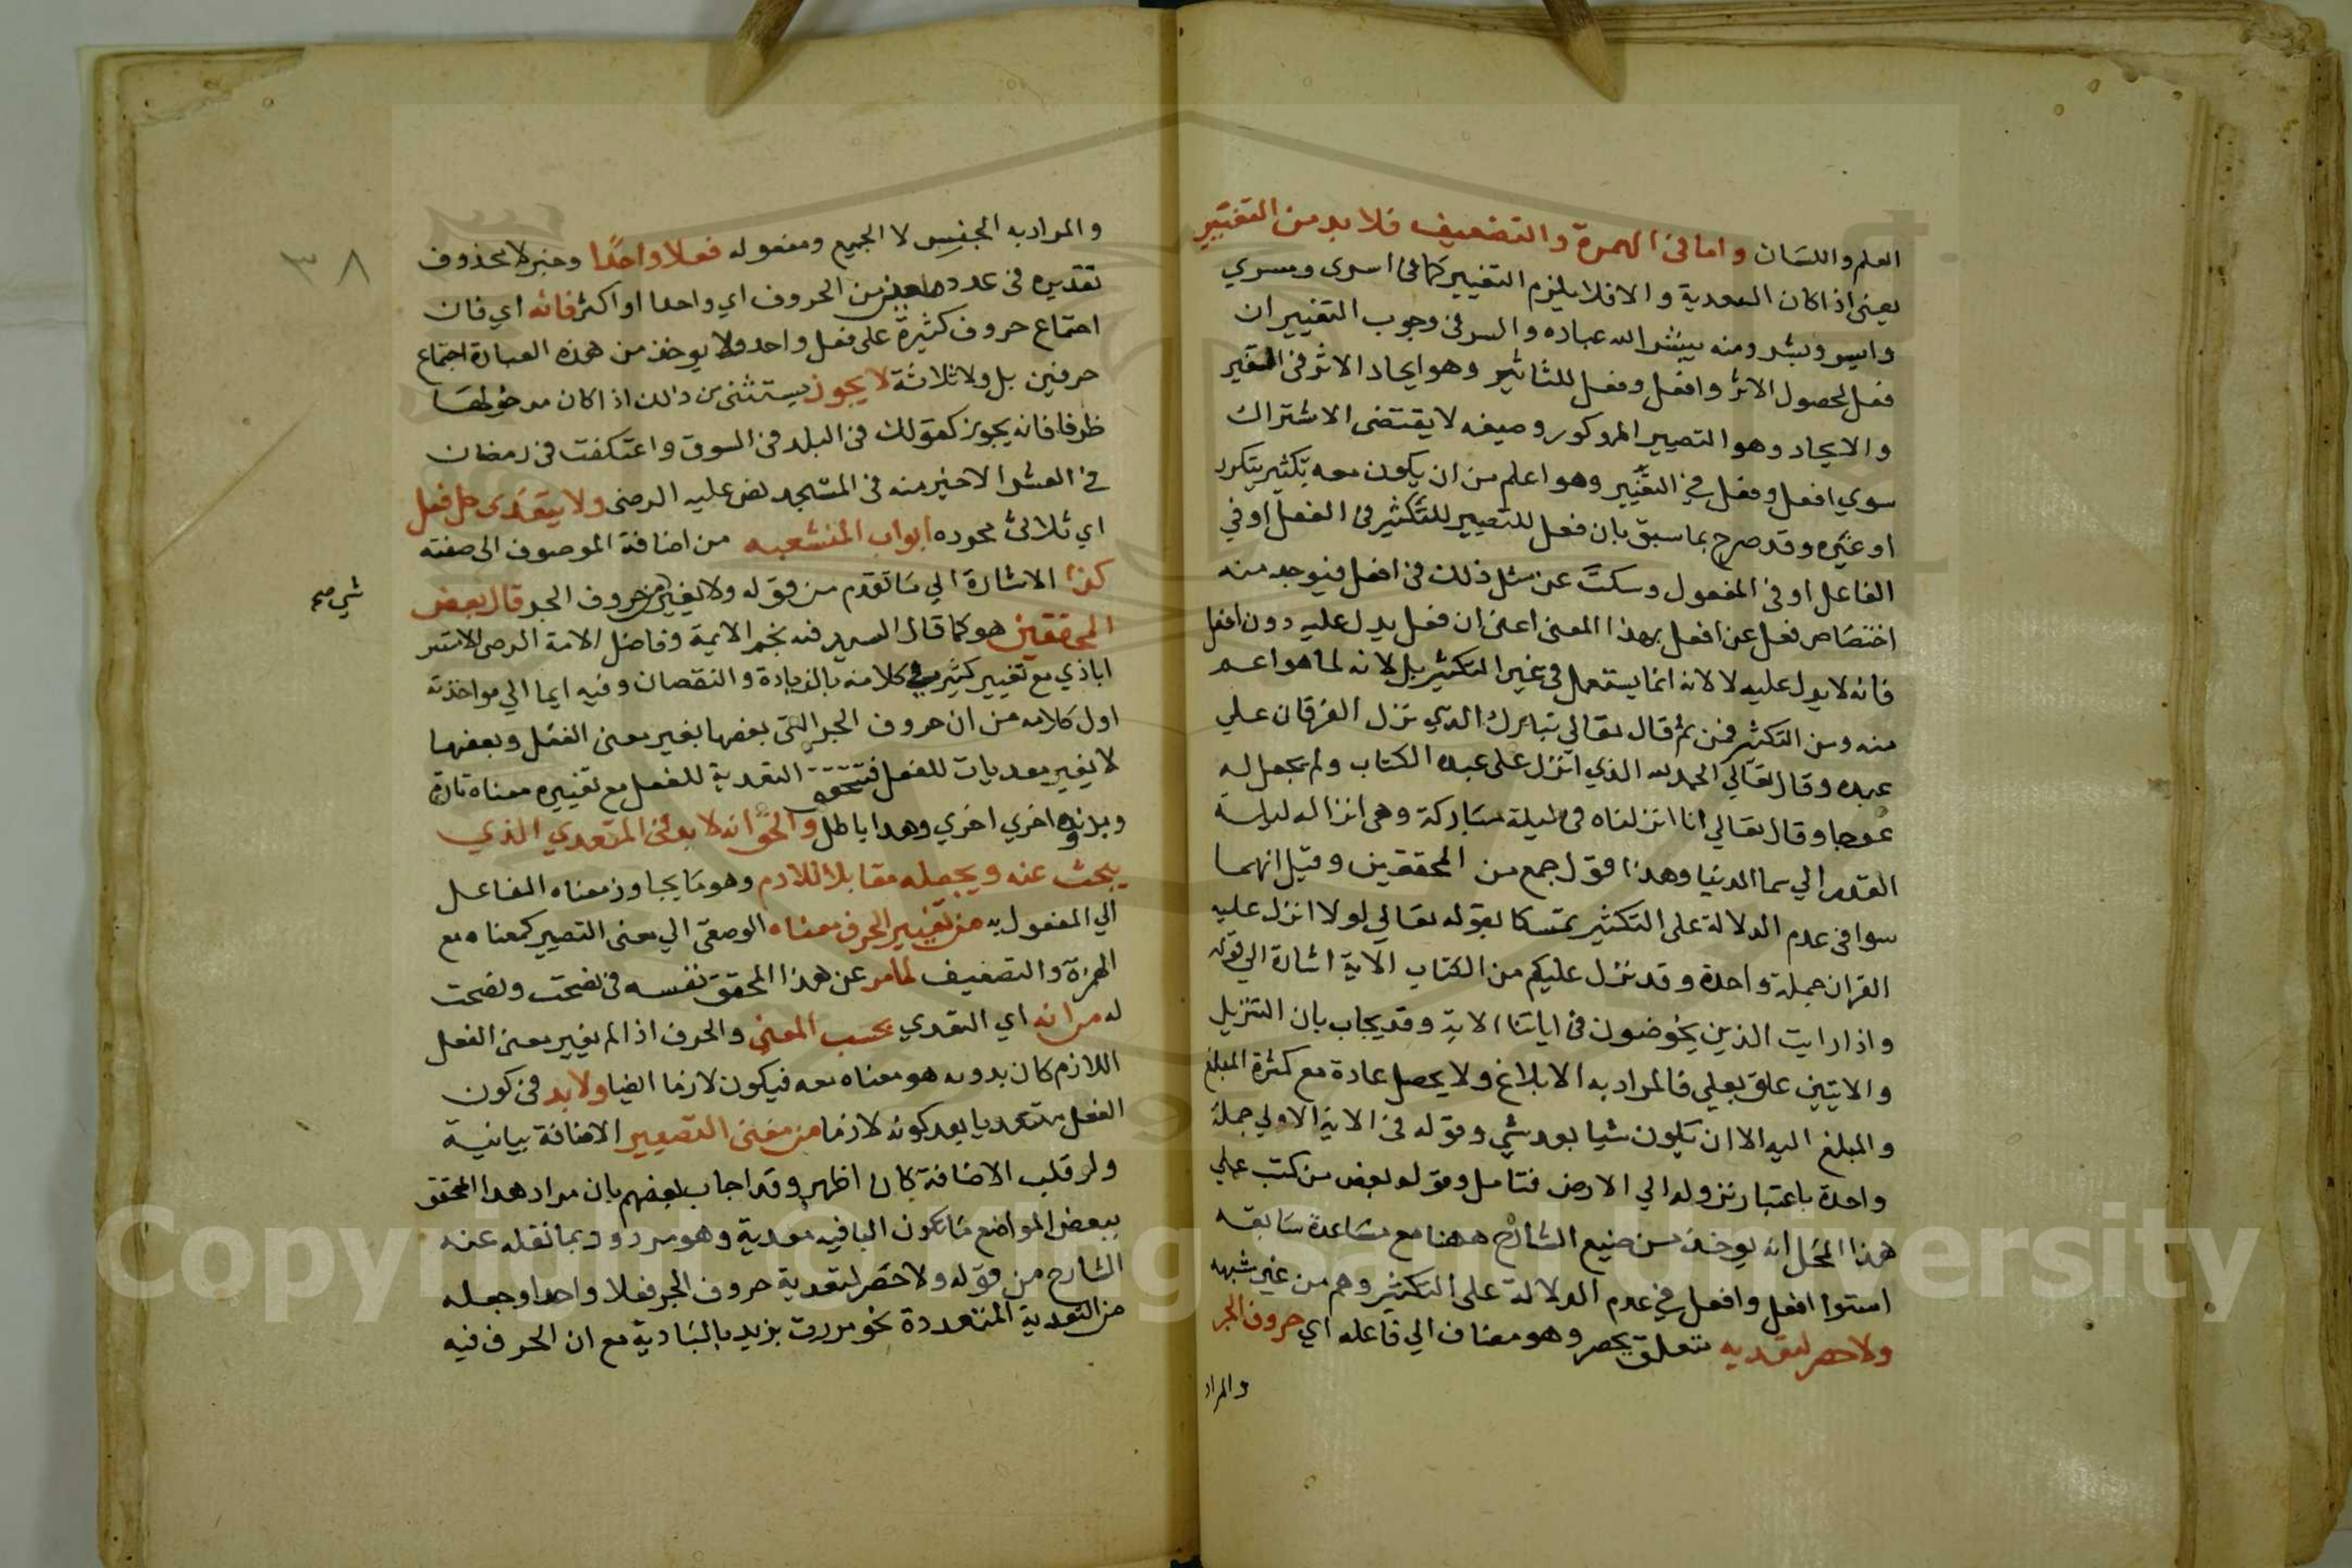 العلم واللسان واما في الهمزة والتضعيف فلا بد من التغيير
يعني اذا كان للتعدية والا فلا يلزم التغيير كما في اسرى وسري
وايسر وبشر ومنه يبشر الله عباده والسر في وجوب التغيير ان
فعل لحصول الاثر وافعل وفعل للتاثير وهو ايجاد الاثر في المتغير
والايجاد وهو التصيير المذكور وصيغه لا يقتضى الاشتراك
سوي افعل وفعل في التغيير وهو اعلم من ان يكون معه تكثير يتكرر
او غيره وقد صرح بما سبق بان فعل للتصيير للتكثير في الفعل او في
الفاعل او في المفعول وسكت عن مثل ذلك في افعل فيوجد منه
اختصاص فعل عن افعل بهذا المعنى اعنى ان فعل يدل عليه دون افعل
فانه لا يدل عليه لا لانه انما يستعمل في غير التكثير بل لانه لما هو اعم
منه ومن التكثير فمن ثم قال تعالي تبارك الذي نزل الفرقان علي
عبده وقال تعالي الحمد لله الذي انزل على عبده الكتاب ولم يجعل له
عوجا وقال تعالي انا انزلناه في ليلة مباركة وهي انزاله ليلة
القدر الي سما الدنيا وهذا قول جمع من المحققين وقيل انهما
سوا في عدم الدلالة على التكثير تمسكا بقوله تعالي لولا انزل عليه
القران جملة واحدة وقد نزل عليكم من الكتاب الاية اشارة الي قوله
واذا رايت الذين يخوضون في اياتنا الاية وقد يجاب بان التنزيل
والايتين علق بعلي فالمراد به الابلاغ ولا يحصل عادة مع كثرة المبلغ
والمبلغ اليه الا ان يكون شيا بعد شي وقوله في الاية الاولي جملة
واحدة باعتبار نزوله الي الارض فتامل وقوله بعض من كتب علي
هذا المحل انه يوخذ من صنيع الشارح ههنا مع مساعدة سابقه
استوا افعل وافعل في عدم الدلالة على التكثير وهم من غير شبهه
ولا حصر لتعديه متعلق بحصر وهو مضاف الي فاعله اي حروف الجر
والمراد
والمراد به الجنس لا الجميع ومفعوله فعلا واحدا وخبر لا محذوف
تقديره في عدد معين من الحروف اي واحدا او اكثر فانه اي فان
اجتماع حروف كثيرة على فعل واحد ولا يوخذ من هذه العبارة اجتماع
حرفين بل ولا ثلاثة لا يجوز يستثنى من ذلك اذا كان مدخولها
ظرفا فانه يجوز كقولك في البلد في السوق واعتكفت في رمضان
في العشر الاخير منه في المسجد نص عليه الرضى ولا يتعدى كل فعل
اي ثلاثي مجوده ابواب المنشعبه من اضافة الموصوف الى صفته
كذا الاشارة الي ما تقدم من قوله ولا يغير من حروف الجر قال بعض
شي صح
المحققين هو كما قال السيد فنه نجم الايمة وفاضل الامة الرضى الاستر
اباذي مع تغيير كثير في كلامه بالزيادة والنقصان وفيه ايما الي مواخذته
اول كلامه من ان حروف الجر التى بعضها يغير معنى الفعل وبعضها
لا يغير معديات للفعل فتتحقق التعدية للفعل مع تغييره معناه تارة
وبدنه اخري اخري وهذا باطل والحق انه لا بد في المتعدي الذي
يبحث عنه ويجعله مقابلا للازم وهو ما يجاوز معناه الفاعل
الي المفعول به من تغيير الحرف معناه الوضعى الي معنى التصيير كمعناه مع
الهمزة والتضعيف لما مر عن هذا المحقق نفسه في نصحت ونصحت
له مرانه اي التعدي بحسب المعني والحرف اذا لم يغير معنى الفعل
اللازم كان بدونه هو معناه معه فيكون لازما ايضا ولا بد في كون
الفعل متعديا بعد كونه لازما من معنى التصيير الاضافة بيانية
ولو قلب الاضافة كان اظهر وقد اجاب بعضهم بان مراد هذا المحقق
ببعض المواضع ما تكون البا فيه معدية وهو مردود بما نقله عنه
الشارح من قوله ولا حصر لتعدية حروف الجر فعلا واحدا وجعله
من التعدية المتعددة نحو مررت بزيد بالبادية مع ان الحرف فيه
٣٨
Copyright © King Saud University